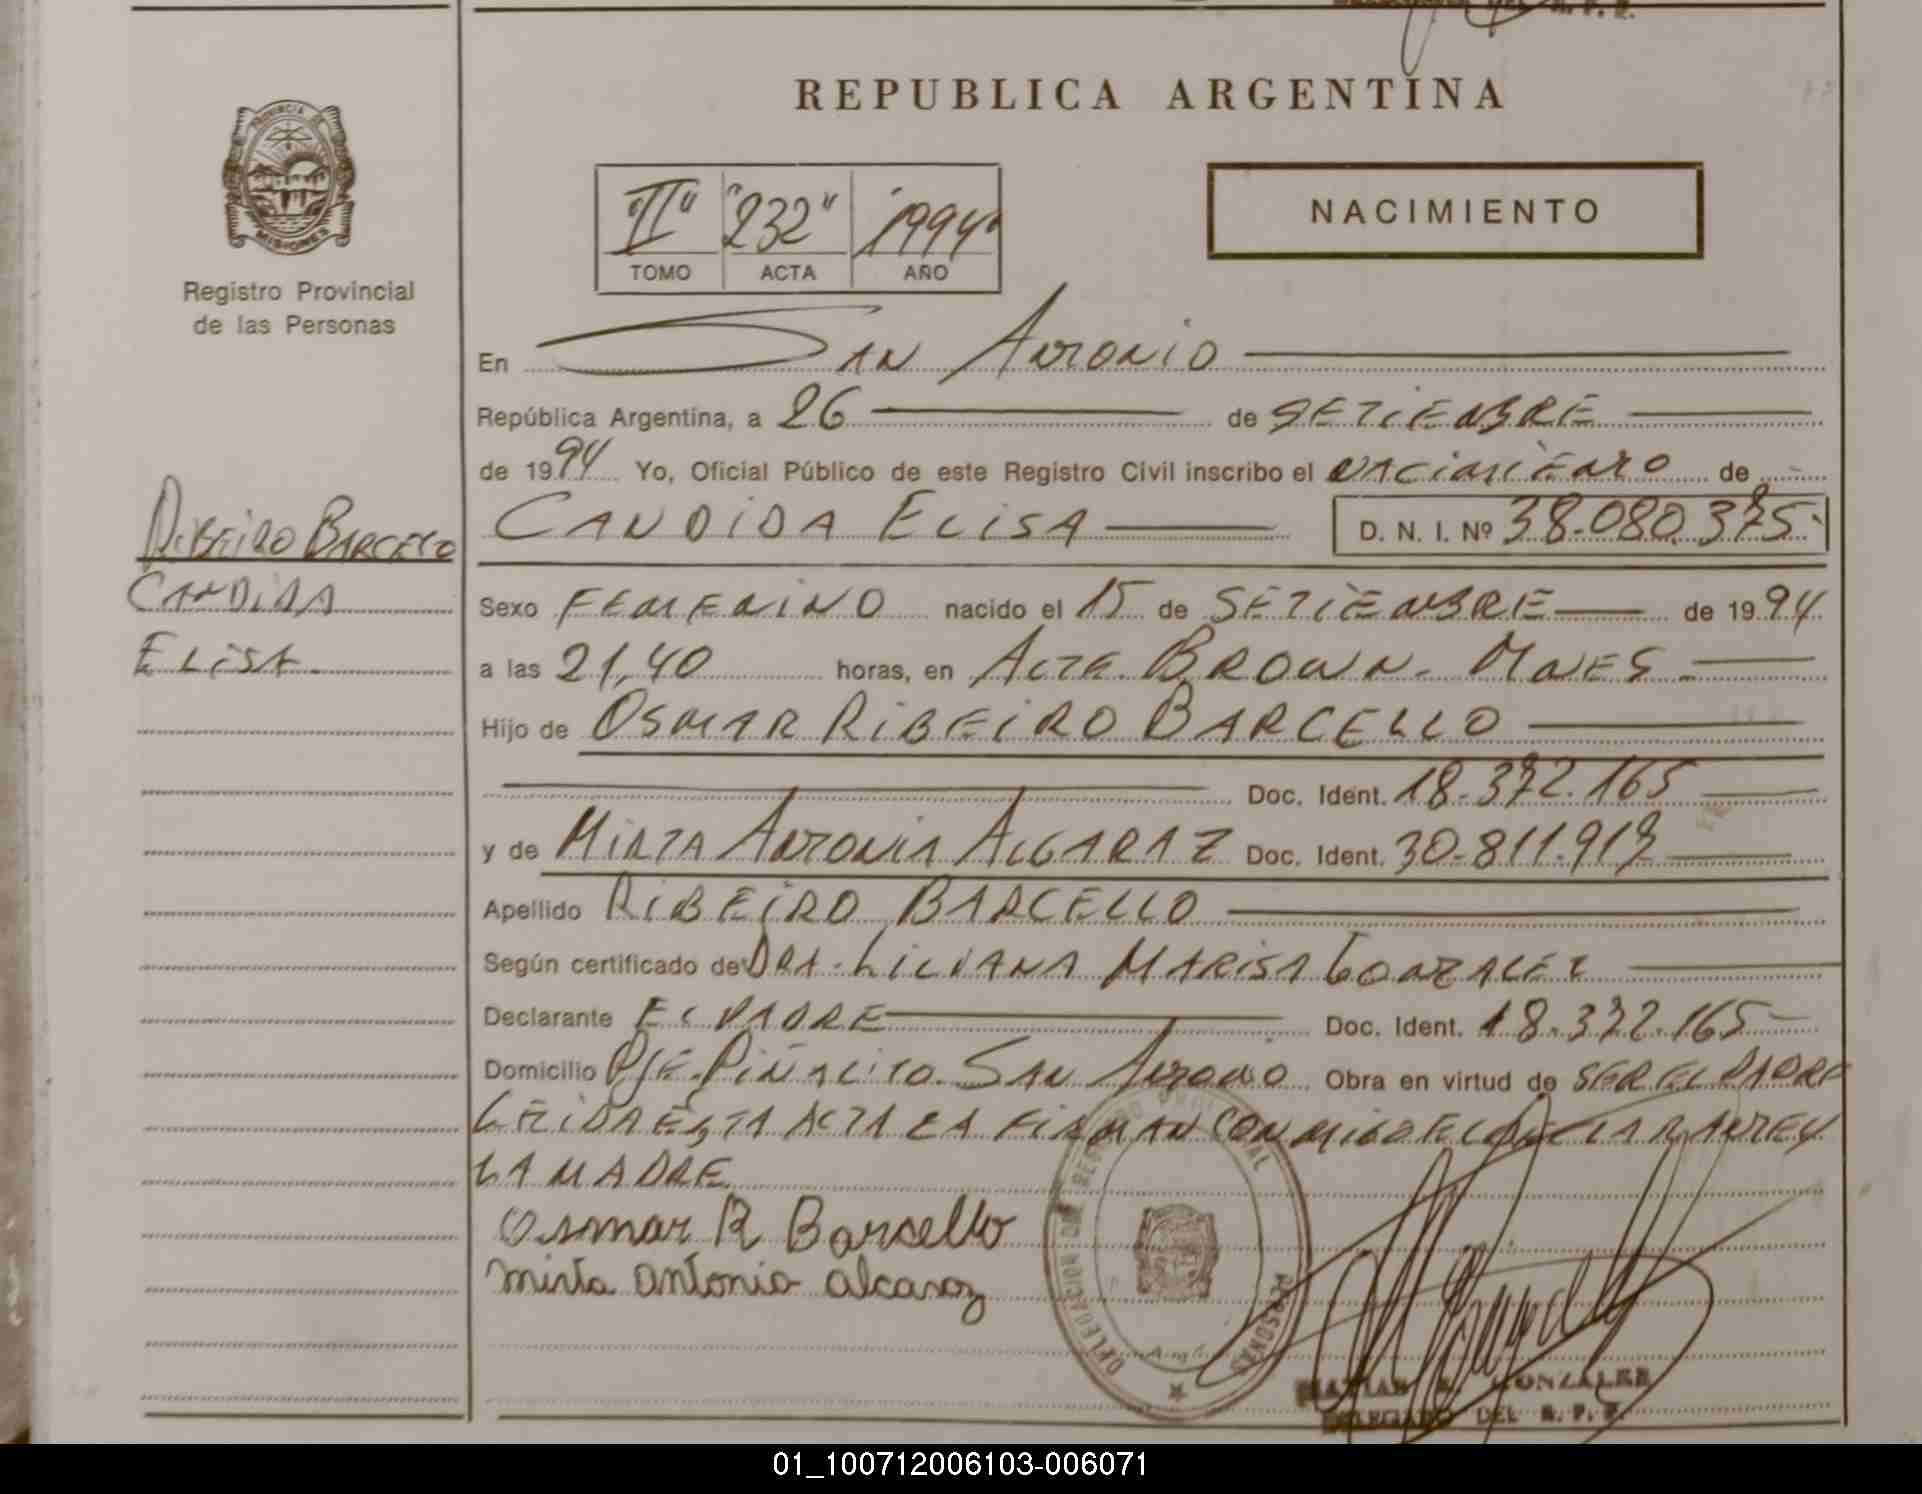 REPUBLICA ARGENTINA
PROVINCIA DE
MISIONES
Registro Provincial
de las Personas
"II" "232" "1994"
TOMO ACTA AÑO
NACIMIENTO
En San Antonio
República Argentina, a 26 de SETIEMBRE
de 1994 Yo, Oficial Público de este Registro Civil inscribo el nacimiento de
CANDIDA ELISA D. N. I. Nº 38.080.375
RIBEIRO BARCELLO
CANDIDA
ELISA
Sexo FEMENINO nacido el 15 de SETIEMBRE de 1994
a las 21,40 horas, en ALTE. BROWN - MNES
Hijo de OSMAR RIBEIRO BARCELLO
Doc. Ident. 18.372.165
y de MIRTA ANTONIA ALCARAZ Doc. Ident. 30.811.913
Apellido RIBEIRO BARCELLO
Según certificado de DRA. LILIANA MARISA GONZALEZ
Declarante EL PADRE Doc. Ident. 18.372.165
Domicilio PJE. PIÑALITO. SAN ANTONIO Obra en virtud de SER EL PADRE
LEIDA ESTA ACTA LA FIRMAN CONMIGO EL DECLARANTE Y
LA MADRE
Osmar R Barcello
mirta antonia alcaraz
DELEGACION DEL REGISTRO PROVINCIAL
PERSONAS
GONZALEZ
DELEGADO DEL R. P. P.
01_100712006103-006071